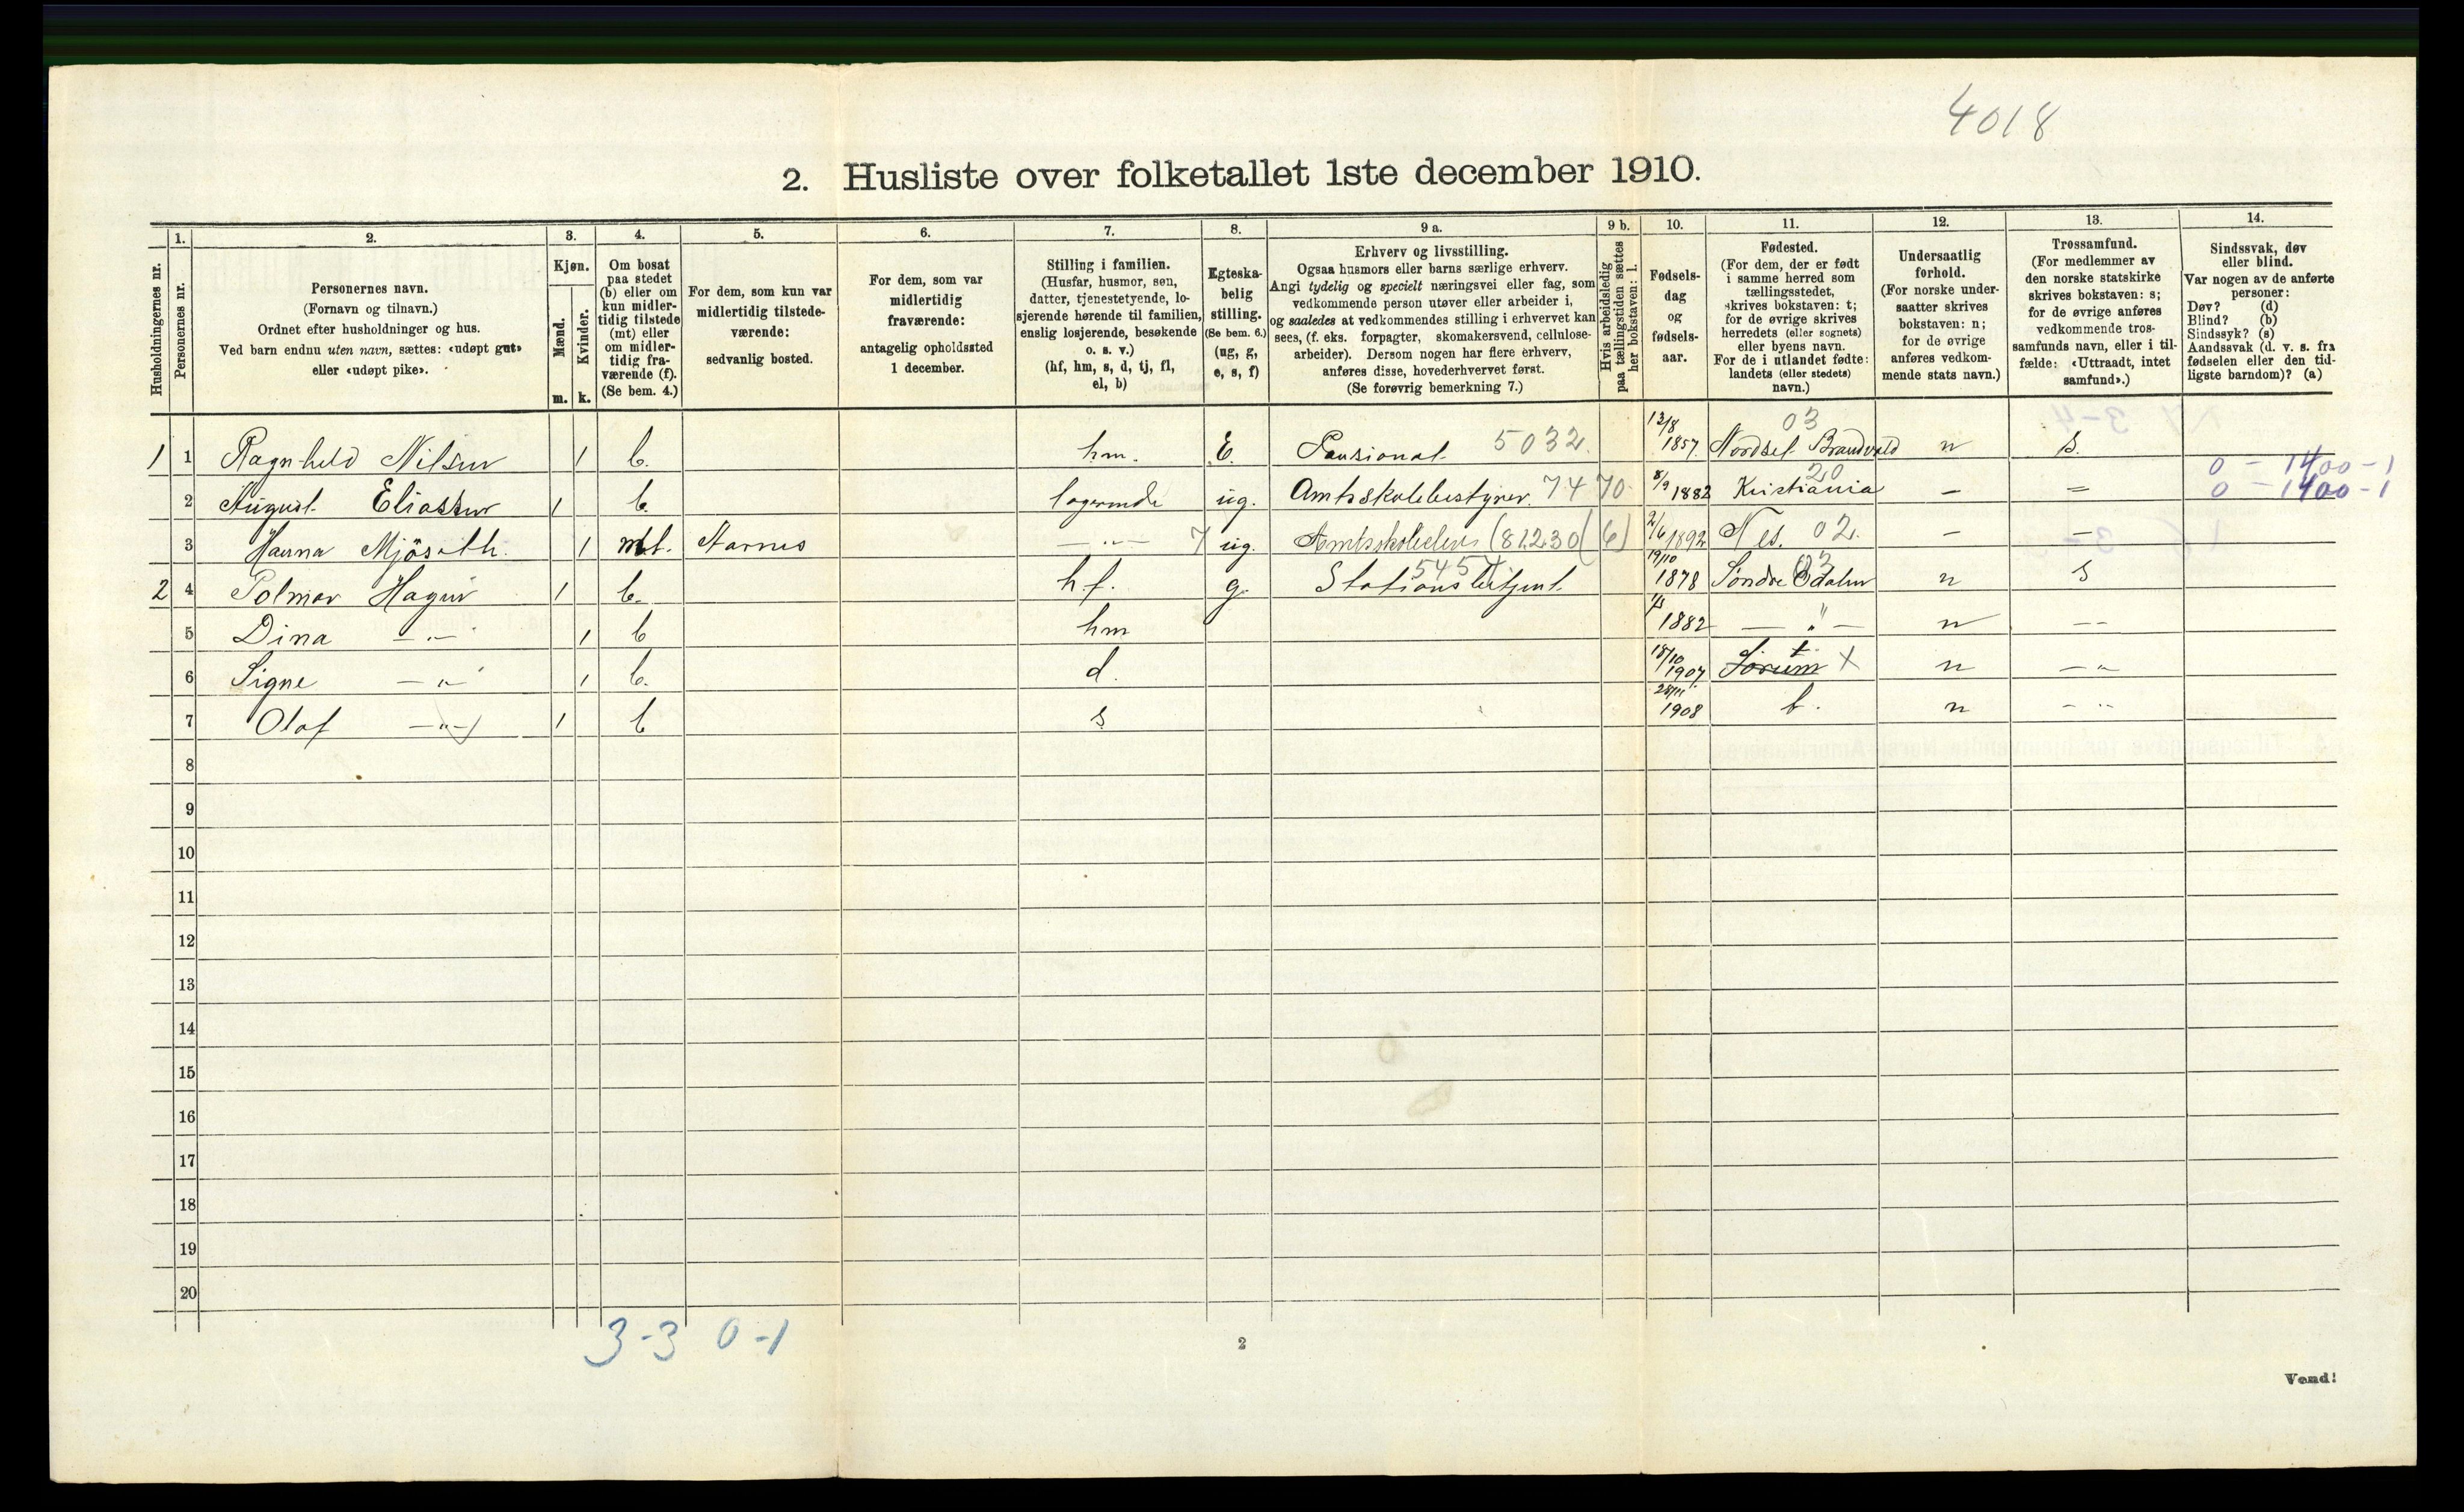 4018
2. Husliste over folketallet 1ste december 1910.
Husholdningernes nr.
1.
Personernes nr.
2.
Personernes navn.
(Fornavn og tilnavn.)
Ordnet efter husholdninger og hus.
Ved barn endnu uten navn, sættes: «udøpt gut»
eller «udøpt pike».
3.
Kjøn.
Mænd.
Kvinder.
m. k.
4.
Om bosat
paa stedet
(b) eller om
kun midler-
tidig tilstede
(mt) eller
om midler-
tidig fra-
værende (f).
(Se bem. 4.)
5.
For dem, som kun var
midlertidig tilstede-
værende:
sedvanlig bosted.
6.
For dem, som var
midlertidig
fraværende:
antagelig opholdssted
1 december.
7.
Stilling i familien.
(Husfar, husmor, søn,
datter, tjenestetyende, lo-
sjerende hørende til familien,
enslig losjerende, besøkende
o. s. v.)
(hf, hm, s, d, tj, fl,
el, b)
8.
Egteska-
belig
stilling.
(Se bem. 6.)
(ug, g,
e, s, f)
9 a.
Erhverv og livsstilling.
Ogsaa husmors eller barns særlige erhverv.
Angi tydelig og specielt næringsvei eller fag, som
vedkommende person utøver eller arbeider i,
og saaledes at vedkommendes stilling i erhvervet kan
sees, (f. eks. forpagter, skomakersvend, cellulose-
arbeider). Dersom nogen har flere erhverv,
anføres disse, hovederhvervet først.
(Se forøvrig bemerkning 7.)
9 b.
Hvis arbeidsledig
paa tællingstiden sættes
her bokstaven: l.
10.
Fødsels-
dag
og
fødsels-
aar.
11.
Fødested.
(For dem, der er født
i samme herred som
tællingsstedet,
skrives bokstaven: t;
for de øvrige skrives
herredets (eller sognets)
eller byens navn.
For de i utlandet fødte:
landets (eller stedets)
navn.)
12.
Undersaatlig
forhold.
(For norske under-
saatter skrives
bokstaven: n;
for de øvrige
anføres vedkom-
mende stats navn.)
13.
Trossamfund.
(For medlemmer av
den norske statskirke
skrives bokstaven: s;
for de øvrige anføres
vedkommende tros-
samfunds navn, eller i til-
fælde: «Uttraadt, intet
samfund».)
14.
Sindssvak, døv
eller blind.
Var nogen av de anførte
personer:
Døv? (d)
Blind? (b)
Sindssyk? (s)
Aandssvak (d. v. s. fra
fødselen eller den tid-
ligste barndom)? (a)
1 1 Ragnhild Nilsen 1 b. hm. E. Pensionat 5032. 13/8 1857. Nordset Brandvold 03 n s.
0 - 1400 - 1
2 August Eliassen 1 b. logerende ug. Amtsskolebestyrer. 7470. 8/9 1882 Kristiania 20 — = 0 - 1400 - 1
3 Hanna Mjöseth. 1 mt. Aarnes — " — 7 ug. Amtsskoleelev (81230(6) 2/6 1892 Nes. 02. — —
2 4 Polmar Hagen 1 b. hf. g. Stationsbetjent 5454 19/10 1878 Söndre Odalen 03 n s
5 Dina — " — 1 b hm 1/3 1882 — " — n — —
6 Signe — " — 1 b. d. 18/10 1907 Sörum t. X n — "
7 Olaf — " — 1 b s 28/11 1908 t. n — "
8
9
10
11
12
13
14
15
16
17
18
19
20
3-3 0-1
2
Vend!